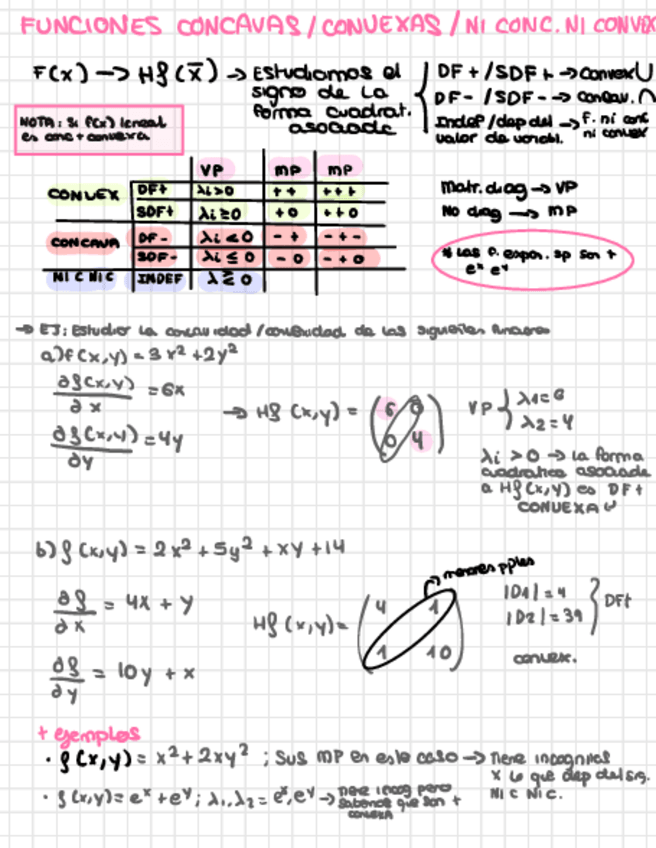 FUNCIONES CONCAVAS/CONVEXAS/NI CONC. NI CONVEX
F(x) → Hf(x̄) → Estudiamos el signo de la forma cuadrat. asociada
DF+/SDF+ → Convex ∪
DF-/SDF- → Concav. ∩
Indef/dep del valor de variabl. → f. ni conc ni convex
NOTA: Si f(x) lineal
es conc + convexa
VP MP MP
CONVEX DF+ λi>0 ++ +++
SDF+ λi≥0 +0 ++0
CONCAVA DF- λi<0 -+ -+-
SDF- λi≤0 -0 -+0
NI C NIC INDEF λ ≷ 0
Matr. diag → VP
No diag → MP
* Las f. expon. sp son +
eˣ eʸ
→ EJ: Estudiar la concavidad/convexidad de las siguientes funciones
a) f(x,y) = 3x² + 2y²
∂f(x,y)/∂x = 6x
∂f(x,y)/∂y = 4y
→ Hf (x,y) = (6 0
0 4)
VP { λ1=6
λ2=4
λi > 0 → la forma
cuadratica asociada
a Hf(x,y) es DF+
CONVEXA ∪
b) f(x,y) = 2x² + 5y² + xy + 14
∂f/∂x = 4x + y
∂f/∂y = 10y + x
menores pples
Hf (x,y) = (4 1
1 10)
|D1| = 4
|D2| = 39 } DF+
convex.
+ ejemplos
· f(x,y) = x² + 2xy² ; Sus MP en este caso → Tiene incognitas
x lo que dep del sig.
NI C NIC.
· f(x,y) = eˣ + eʸ ; λ1, λ2 = eˣ, eʸ → tiene incog pero
sabemos que son +
convexa